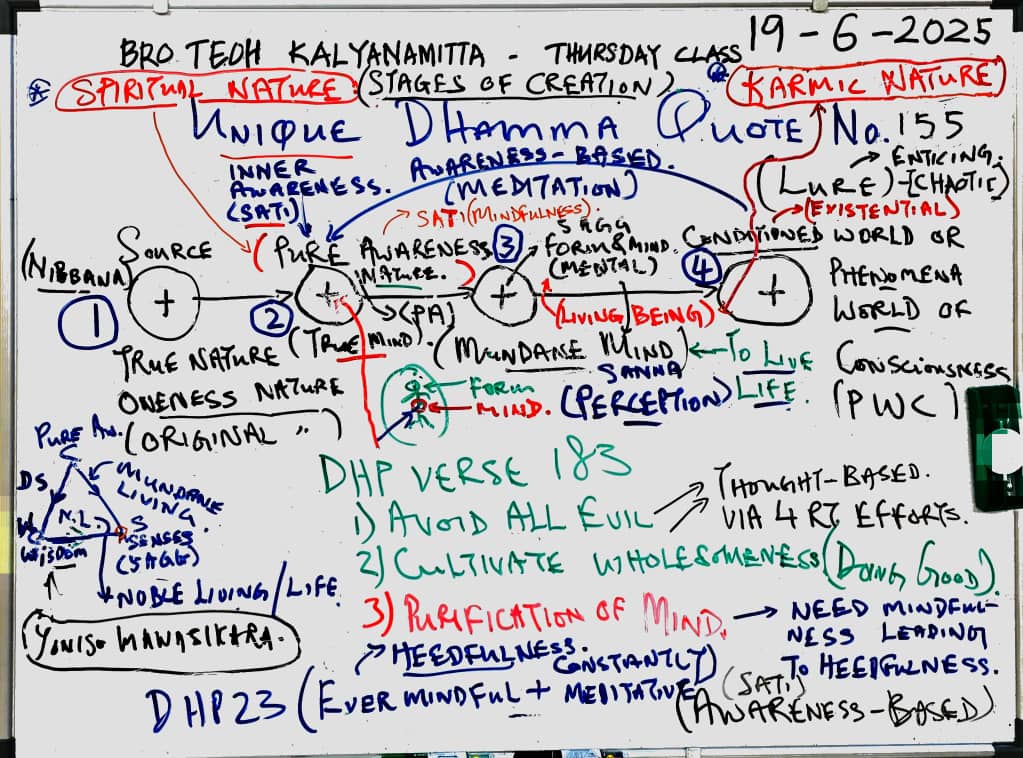 19-6-2025
BRO TEOH KALYANAMITTA - THURSDAY CLASS
SPIRITUAL NATURE (STAGES OF CREATION) KARMIC NATURE
UNIQUE DHAMMA QUOTE No. 155
INNER AWARENESS. (SATI)
AWARENESS-BASED. (MEDITATION)
ENTICING.
(LURE)-[CHAOTIC]
(EXISTENTIAL)
SATI (MINDFULNESS).
(NIBBANA) SOURCE
1
(PURE AWARENESS NATURE.)
2
(PA)
3
5 AGG
FORM & MIND.
(MENTAL)
4
CONDITIONED WORLD OR
PHENOMENA
WORLD OF
CONSCIOUSNESS
(PWC)
(LIVING BEING)
TRUE NATURE (TRUE MIND).
ONENESS NATURE
(ORIGINAL ")
(MUNDANE MIND) TO LIVE LIFE.
SANNA
(PERCEPTION)
FORM
MIND.
PURE AW.
DS
MUNDANE LIVING.
N.L.
W
WISDOM
S
SENSES
(5AGG)
NOBLE LIVING/LIFE.
YONISO MANASIKARA.
DHP VERSE 183
1) AVOID ALL EVIL
THOUGHT-BASED.
VIA 4 RT EFFORTS.
2) CULTIVATE WHOLESOMENESS (DOING GOOD).
3) PURIFICATION OF MIND.
NEED MINDFUL-
NESS LEADING
TO HEEDFULNESS.
HEEDFULNESS.
CONSTANTLY)
DHP 23 (EVER MINDFUL + MEDITATIVE
(SATI)
(AWARENESS-BASED)